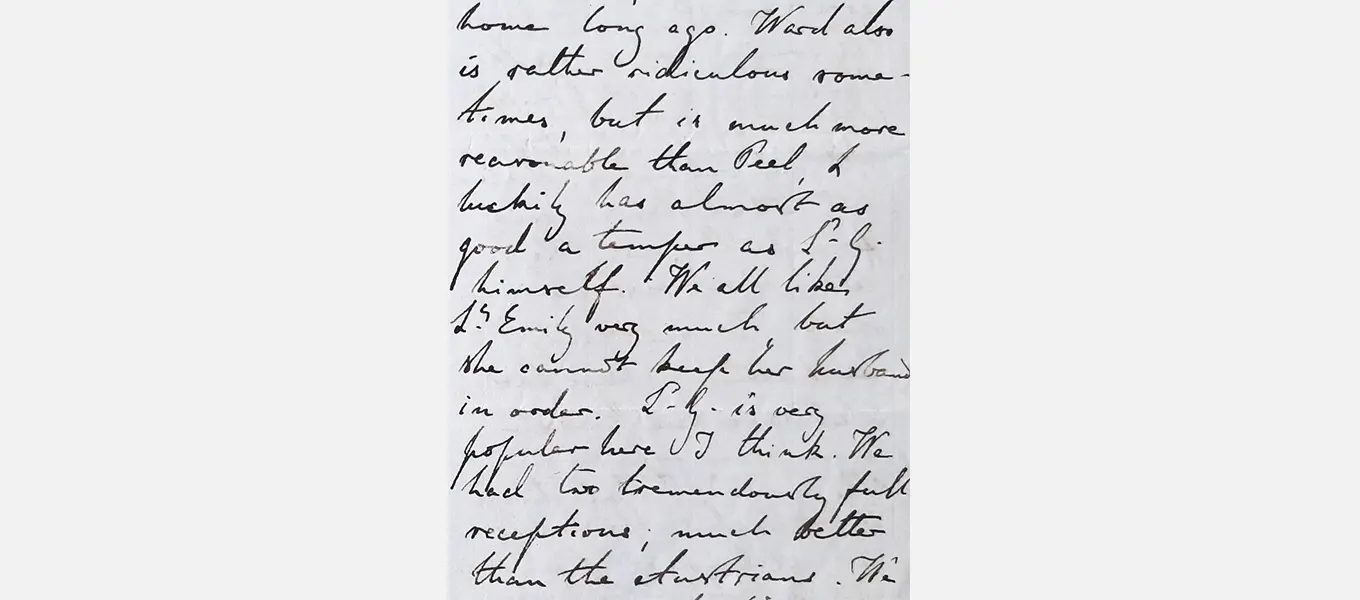 home long ago. Ward also
is rather ridiculous some-
times, but is much more
reasonable than Peel, &
luckily has almost as
good a temper as Ld. G.
himself. We all like
Ly. Emily very much, but
she cannot keep her husband
in order. Ld. G. is very
popular here I think. We
had two tremendously full
receptions; much better
than the Austrians. We